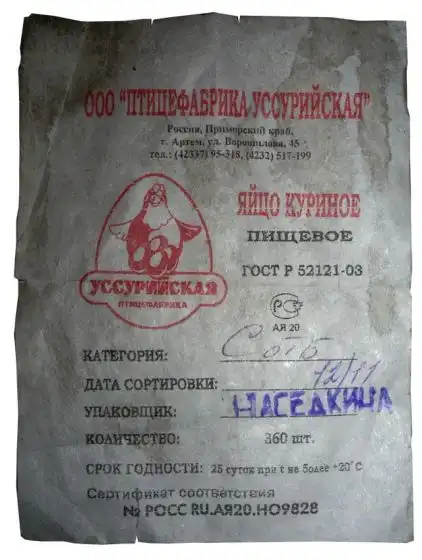 ООО "ПТИЦЕФАБРИКА УССУРИЙСКАЯ"
Россия, Приморский край,
г. Артем, ул. Ворошилова, 45
тел.: (42337) 95-318, (4232) 517-199
ЯЙЦО КУРИНОЕ
ПИЩЕВОЕ
ГОСТ Р 52121-03
УССУРИЙСКАЯ
ПТИЦЕФАБРИКА
РСТ
АЯ 20
КАТЕГОРИЯ: С отб
ДАТА СОРТИРОВКИ: 12/11
УПАКОВЩИК: НАСЕДКИНА
КОЛИЧЕСТВО: 360 шт.
СРОК ГОДНОСТИ: 25 суток при t не более +20°С
Сертификат соответствия
№ РОСС RU.АЯ20.НО9828